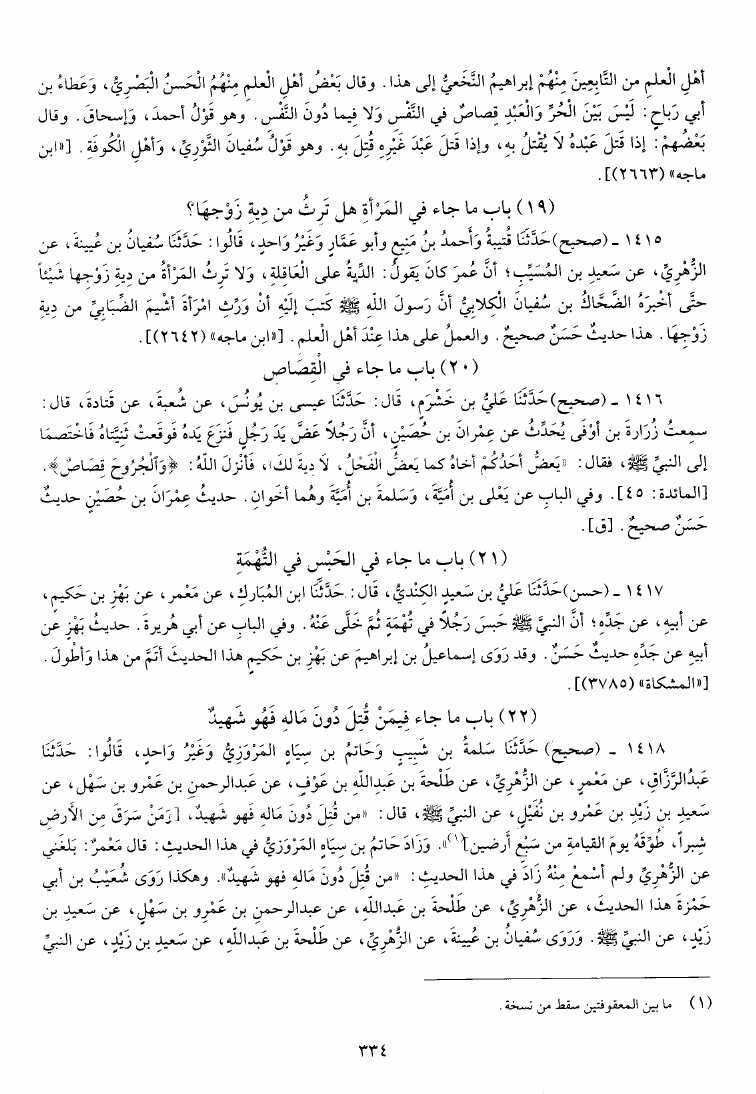 أهْلِ الْعلمِ من التَّابِعينَ مِنْهُمْ إبراهيمُ النَّخَعيُّ إلى هذا. وقال بَعْضُ أهْلِ العلمِ مِنْهُمُ الْحَسنُ الْبَصْرِيُّ، وَعَطاءُ بن
أبي رَباحٍ: لَيْسَ بَيْنَ الْحُرِّ وَالْعَبْدِ قِصاصٌ في النَّفْسِ وَلا فِيما دُونَ النَّفْسِ. وهو قَوْلُ أحمدَ، وَإسحاقَ. وقال
بَعْضُهمْ: إذا قَتلَ عَبْدهُ لاَ يُقْتلُ بهِ، وإذا قَتلَ عَبْدَ غَيْرِهِ قُتِلَ بهِ. وهو قَوْلُ سُفيانَ الثَّوْرِيِّ، وَأهْلِ الْكُوفَةِ. [«ابن
ماجه» (٢٦٦٣)].
(١٩) باب ما جاء في المَرْأةِ هل تَرِثُ من دِيةِ زَوْجهَا؟
١٤١٥ ـ (صحيح) حَدَّثَنَا قُتيبةُ وَأحمدُ بنُ مَنِيعٍ وأبو عَمَّارٍ وَغَيْرُ وَاحدٍ، قَالُوا: حَدَّثَنَا سُفيانُ بن عُيينةَ، عن
الزُّهْرِيِّ، عن سَعِيدِ بن المُسَيِّبِ؛ أنَّ عُمرَ كانَ يَقولُ: الدِّيةُ على الْعَاقِلةِ، وَلا تَرِثُ المَرْأةُ من دِيةِ زَوْجها شَيْئاً
حتَّى أخْبَرَهُ الضَّحَّاكُ بن سُفيانَ الْكِلابيُّ أنَّ رَسولَ اللهِ ﷺ كَتبَ إلَيْهِ أنْ وَرِّثِ امْرَأةَ أشْيمَ الضِّبَابِيِّ من دِيةِ
زَوْجِهَا. هذا حديثٌ حَسَنٌ صحيحٌ. والعملُ على هذا عِنْدَ أهْلِ العلمِ. [«ابن ماجه» (٢٦٤٢)].
(٢٠) باب ما جاء في الْقِصَاصِ
١٤١٦ ـ (صحيح) حَدَّثَنَا عَليُّ بن خَشْرَمٍ، قَال: حَدَّثَنَا عيسى بن يُونُسَ، عن شُعبةَ، عن قَتادةَ، قال:
سمِعتُ زُرَارةَ بن أوْفَى يُحَدِّثُ عن عِمْرانَ بن حُصَيْنٍ، أنَّ رَجُلاً عَضَّ يَدَ رَجُلٍ فَنزَعَ يَدهُ فَوقَعتْ ثَنِيَّتَاهُ فَاخْتصمَا
إلى النبيِّ ﷺ، فقال: «يَعضُّ أحَدُكُمْ أخاهُ كما يَعضُّ الْفَحْلُ، لَا دِيةَ لكَ»، فَأنْزلَ اللهُ: ﴿وَالْجُرُوحَ قِصَاصٌ﴾.
[المائدة: ٤٥]. وفي البابِ عن يَعْلى بن أُمَيَّةَ، وَسَلمةَ بن أُمَيَّةَ وهُما أخَوانِ. حديثُ عِمْرَانَ بن حُصَيْنٍ حديثٌ
حَسَنٌ صحيحٌ. [ق].
(٢١) باب ما جاء في الحَبْسِ في التُّهْمَةِ
١٤١٧ ـ (حسن) حَدَّثَنَا عَليُّ بن سَعيدٍ الكِنْديُّ، قَال: حَدَّثَنَا ابن المُبَاركِ، عن مَعْمرٍ، عن بَهْزِ بن حَكيمٍ،
عن أبيهِ، عن جَدِّهِ؛ أنَّ النبيَّ ﷺ حَبسَ رَجُلاً في تُهْمَةٍ ثُمَّ خَلَّى عَنْهُ. وفي البابِ عن أبي هُريرةَ. حديثُ بَهْزٍ عن
أبيهِ عن جَدِّهِ حديثٌ حَسَنٌ. وقد رَوَى إسماعيلُ بن إبراهيمَ عن بَهْزِ بن حَكيمٍ هذا الحديثَ أتَمَّ من هذا وَأطْولَ.
[«المشكاة» (٣٧٨٥)].
(٢٢) باب ما جاء فِيمَنْ قُتِلَ دُونَ مَالهِ فَهُو شَهيدٌ
١٤١٨ ـ (صحيح) حَدَّثَنَا سَلمةُ بن شَبِيبٍ وَحَاتمُ بن سِيَاهٍ المَرْوَزِيُّ وَغَيْرُ وَاحدٍ، قَالُوا: حَدَّثَنَا
عَبدُالرَّزَّاقِ، عن مَعْمرٍ، عن الزُّهْرِيِّ، عن طَلْحةَ بن عَبداللهِ بن عَوْفٍ، عن عَبدالرحمنِ بن عَمْرِو بن سَهْلٍ، عن
سَعيدِ بن زَيْدِ بن عَمْرِو بن نُفَيْلٍ، عن النبيِّ ﷺ، قال: «من قُتِلَ دُونَ مَالهِ فهو شَهيدٌ، [وَمَنْ سَرَقَ مِن الأرضِ
شِبراً، طُوِّقَهُ يومَ القيامةِ من سَبْعِ أرضين]»(١). وَزَادَ حَاتمُ بن سِيَاهٍ المَرْوَزيُّ في هذا الحديثِ: قال مَعْمرٌ: بَلغَني
عن الزُّهْرِيِّ ولم أسْمعْ مِنْهُ زَادَ في هذا الحديثِ: «من قُتِلَ دُونَ مَالهِ فهو شَهيدٌ». وهكذا رَوَى شُعَيْبُ بن أبي
حَمْزةَ هذا الحديثَ، عن الزُّهْرِيِّ، عن طَلْحةَ بن عَبداللهِ، عن عَبدالرحمنِ بن عَمْرِو بن سَهْلٍ، عن سَعيدِ بن
زَيْدٍ، عن النبيِّ ﷺ. وَرَوَى سُفيانُ بن عُيينةَ، عن الزُّهْرِيِّ، عن طَلْحةَ بن عَبداللهِ، عن سَعيدِ بن زَيْدٍ، عن النبيِّ
(١) ما بين المعقوفتين سقط من نسخة.
٣٣٤